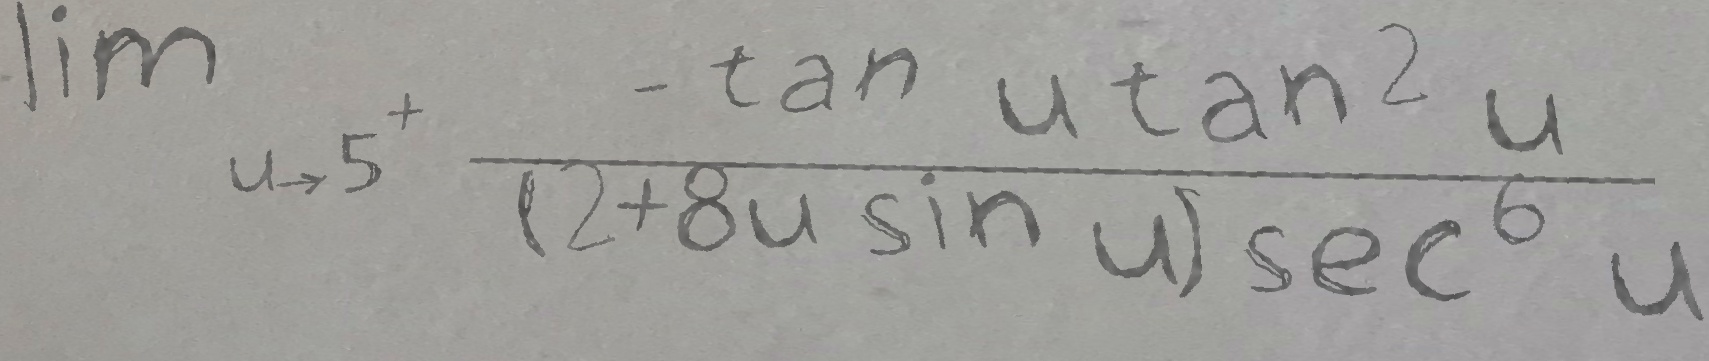 \lim_{u \to 5^+} \frac{-\tan u \tan^2 u}{(2+8u \sin u) \sec^6 u}